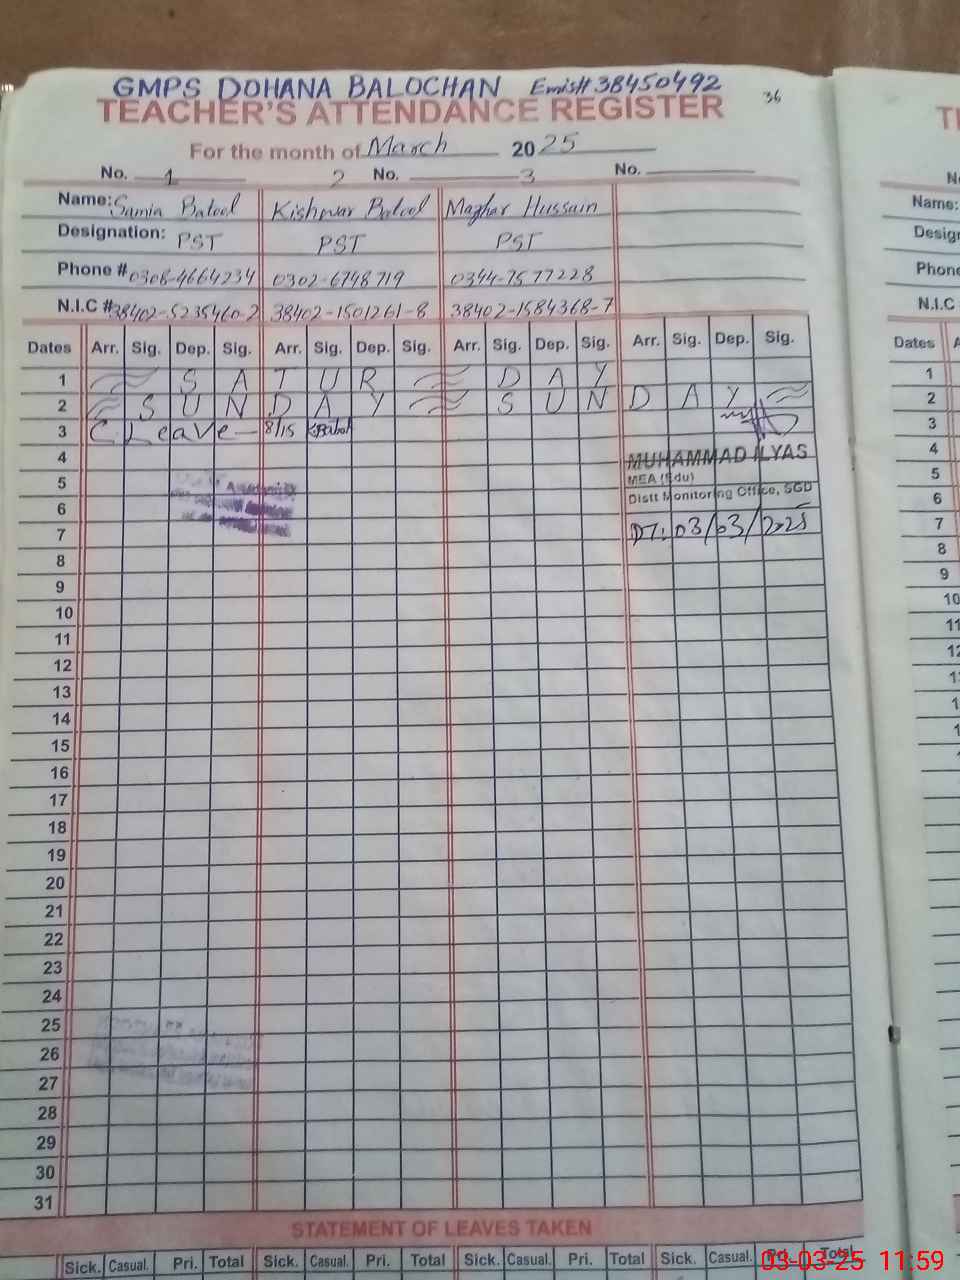 GMPS DOHANA BALOCHAN Emis# 38450492
36
TEACHER'S ATTENDANCE REGISTER
For the month of March 2025
No. 1 2 No. 3 No.
Name: Samia Batool Kishwar Batool Mazhar Hussain
Designation: PST PST PST
Phone # 0308-4664234 0302-6748719 0344-7577228
N.I.C # 38402-5235460-2 38402-1501261-8 38402-1584368-7
Dates Arr. Sig. Dep. Sig. Arr. Sig. Dep. Sig. Arr. Sig. Dep. Sig. Arr. Sig. Dep. Sig.
1 S A T U R D A Y
2 S U N D A Y S U N D A Y
3 C Leave - 8/15 K.Batol
4
MUHAMMAD ILYAS
5
MEA (Edu)
6
Distt Monitoring Office, SGD
7
DT: 03/03/2025
8
9
10
11
12
13
14
15
16
17
18
19
20
21
22
23
24
25
26
27
28
29
30
31
STATEMENT OF LEAVES TAKEN
Sick. Casual. Pri. Total Sick. Casual. Pri. Total Sick. Casual. Pri. Total Sick. Casual. Pri. Total
03-03-25 11:59
No
Name:
Desig
Phone
N.I.C
Dates
1
2
3
4
5
6
7
8
9
10
11